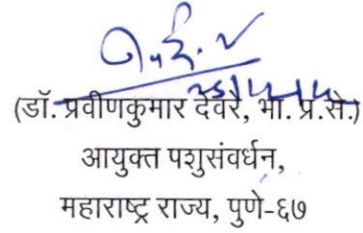 (डॉ. प्रवीणकुमार देवरे, भा. प्र.से.)
आयुक्त पशुसंवर्धन,
महाराष्ट्र राज्य, पुणे-६७